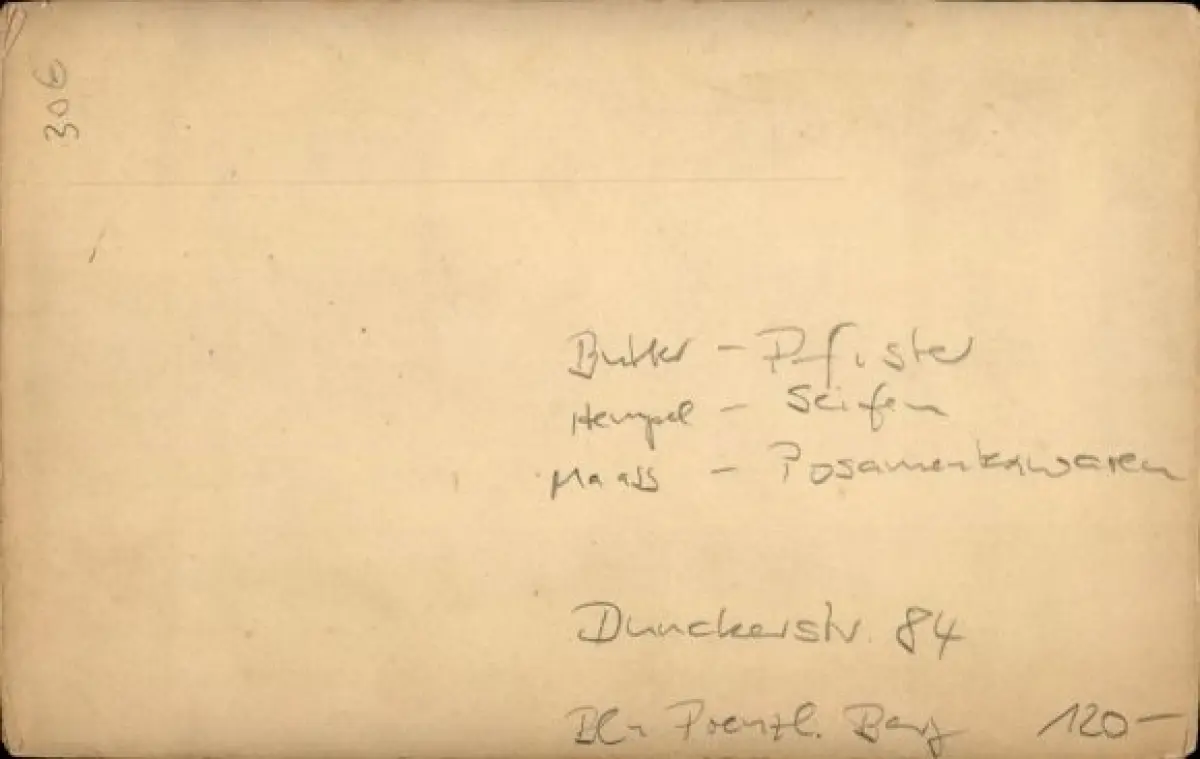 306
Butter - Pfister
Hempel - Seifen
Maaß - Posamentenwaren
Dunckerstr. 84
Bln Prenzl. Berg 120-